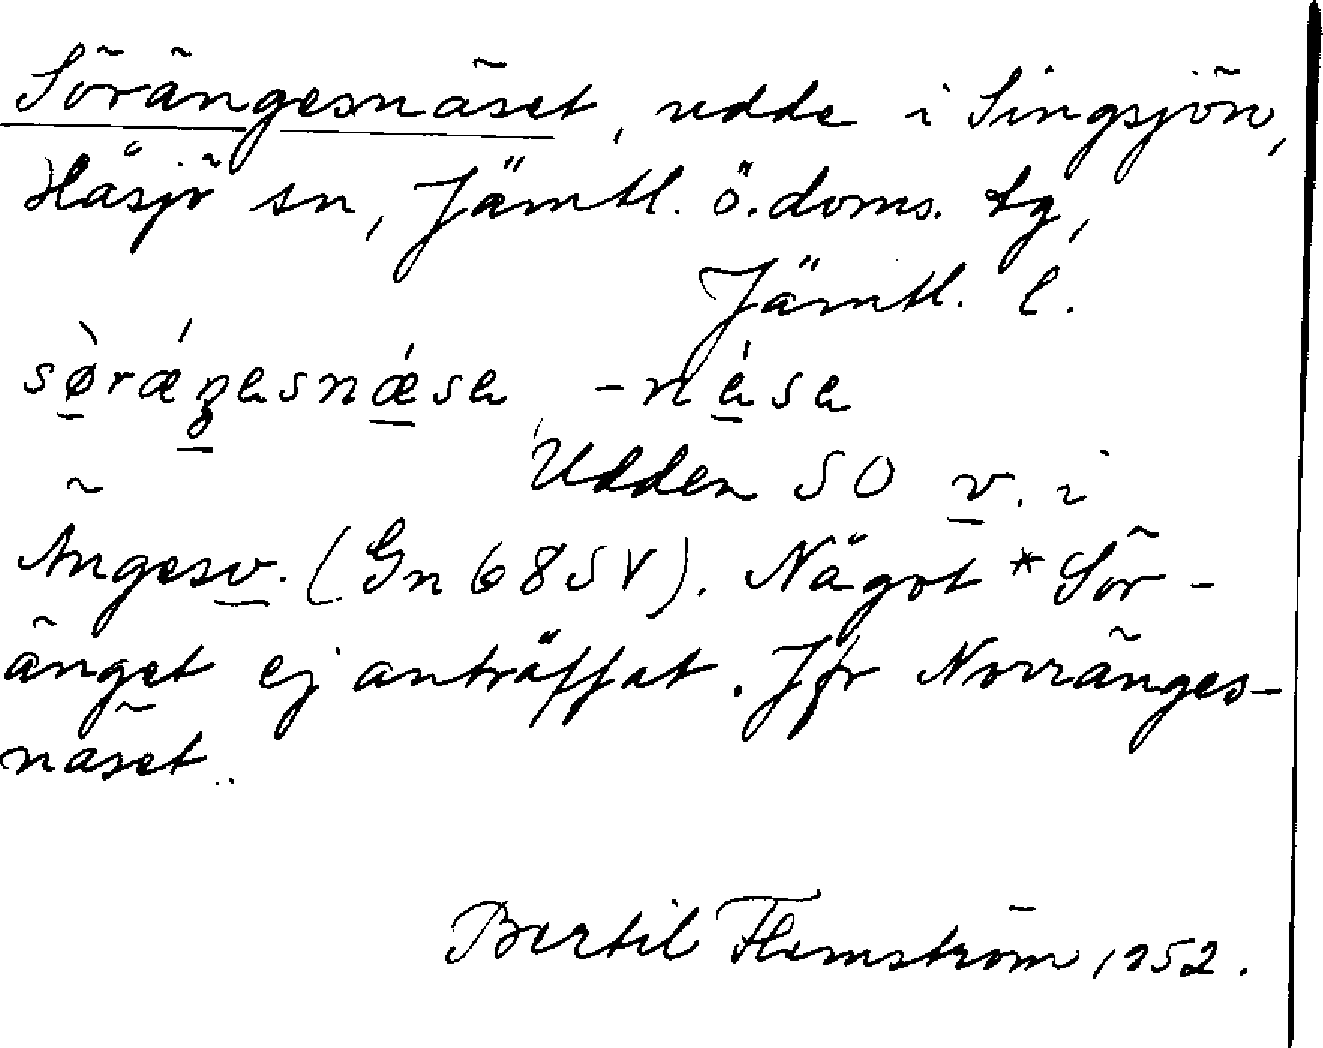 Sörängesnäset, udde i Singsjön,
Håsjö sn, Jämtl. ö. doms. tg,
Jämtl. l.
sø̀rǽŋesnǽse, -nése
Udden SO v. i
Ängesv. (Gn 68 SV). Något *Sör-
änget ej anträffat. Jfr Norränges-
näset.
Bertil Flemström 1952.